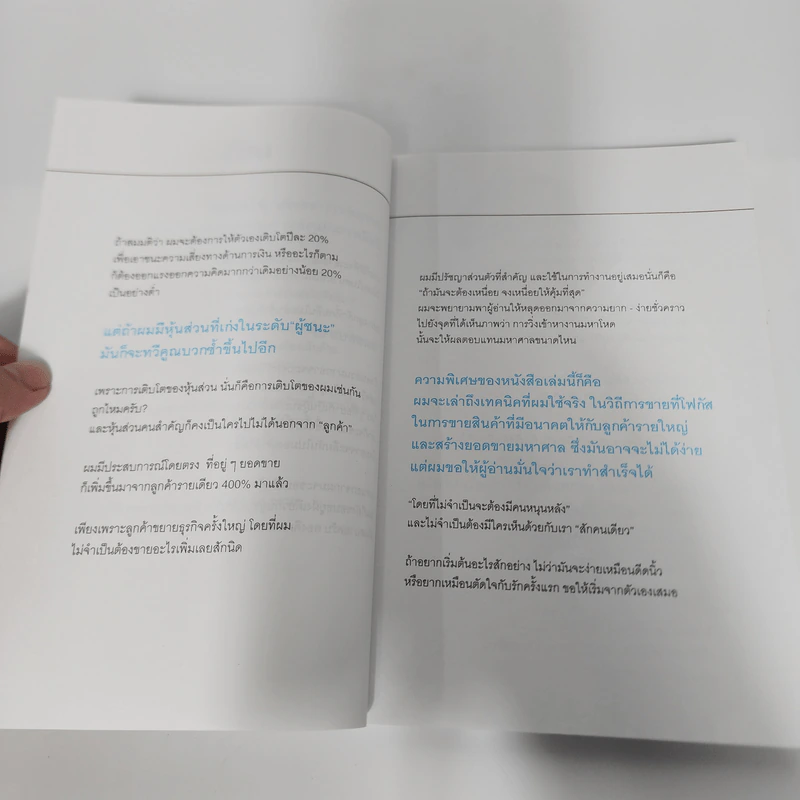 ถ้าสมมติว่า ผมจะต้องการให้ตัวเองเติบโตปีละ 20%
เพื่อเอาชนะความเสี่ยงทางด้านการเงิน หรืออะไรก็ตาม
ก็ต้องออกแรงออกความคิดมากกว่าเดิมอย่างน้อย 20%
เป็นอย่างต่ำ
แต่ถ้าผมมีหุ้นส่วนที่เก่งในระดับ“ผู้ชนะ”
มันก็จะทวีคูณบวกซ้ำขึ้นไปอีก
เพราะการเติบโตของหุ้นส่วน นั่นก็คือการเติบโตของผมเช่นกัน
ถูกไหมครับ?
และหุ้นส่วนคนสำคัญก็คงเป็นใครไปไม่ได้นอกจาก “ลูกค้า”
ผมมีประสบการณ์โดยตรง ที่อยู่ ๆ ยอดขาย
ก็เพิ่มขึ้นมาจากลูกค้ารายเดียว 400% มาแล้ว
เพียงเพราะลูกค้าขยายธุรกิจครั้งใหญ่ โดยที่ผม
ไม่จำเป็นต้องขายอะไรเพิ่มเลยสักนิด
ผมมีปรัชญาส่วนตัวที่สำคัญ และใช้ในการทำงานอยู่เสมอนั่นก็คือ
“ถ้ามันจะต้องเหนื่อย จงเหนื่อยให้คุ้มที่สุด”
ผมจะพยายามพาผู้อ่านให้หลุดออกมาจากความยาก - ง่ายชั่วคราว
ไปยังจุดที่ได้เห็นภาพว่า การวิ่งเข้าหางานมหาโหด
นั้นจะให้ผลตอบแทนมหาศาลขนาดไหน
ความพิเศษของหนังสือเล่มนี้ก็คือ
ผมจะเล่าถึงเทคนิคที่ผมใช้จริง ในวิถีการขายที่โฟกัส
ในการขายสินค้าที่มีอนาคตให้กับลูกค้ารายใหญ่
และสร้างยอดขายมหาศาล ซึ่งมันอาจจะไม่ได้ง่าย
แต่ผมขอให้ผู้อ่านมั่นใจว่าเราทำสำเร็จได้
“โดยที่ไม่จำเป็นจะต้องมีคนหนุนหลัง”
และไม่จำเป็นต้องมีใครเห็นด้วยกับเรา “สักคนเดียว”
ถ้าอยากเริ่มต้นอะไรสักอย่าง ไม่ว่ามันจะง่ายเหมือนดีดนิ้ว
หรือยากเหมือนตัดใจกับรักครั้งแรก ขอให้เริ่มจากตัวเองเสมอ